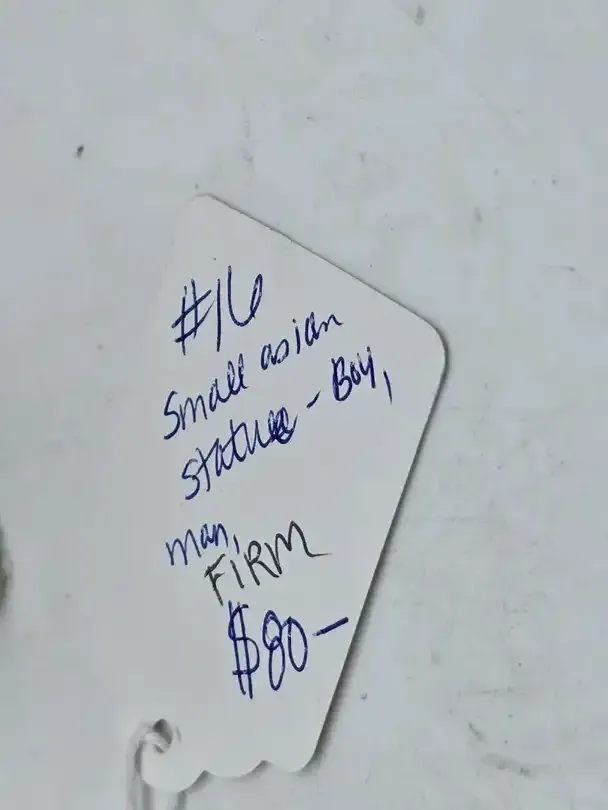 #16
Small asian
statue - Boy,
man,
FIRM
$80-